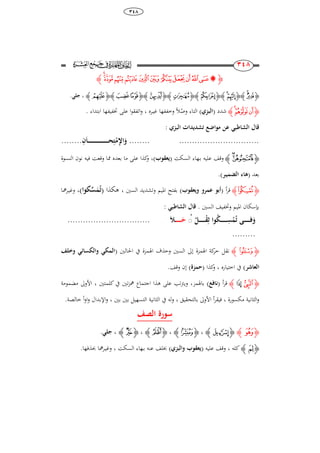 ٣٤٨
﴿ ۞ عَسَى اللَّهُ أَن يَجْعَلَ بَيْنَكُمْ وَبَيْنَ الَّذِينَ عَادَيْتُم مِّنْهُم مَّوَدَّةً ﴾
، جلي.
شدد (البزي) التاء وصلاً وخففها غيره ، واتفقوا على تخفيفها ابتداء .
قال الشاطبي عن مواضع تشديدات البزي :
................................ ........ وَالِامْتِحَانِ.........
وقف عليه بهاء السكت (يعقوب)، وكذا على ما بعده مما وقعت فيه نون النسوة
بعد (هاء الضمير).
قرأ (أبو عمرو ويعقوب) بفتح الميم وتشديد السين ، هكذا (تُمَسِّكُوا)، وغيرهما
بإسكان الميم وتخفيف السين . قال الشاطبي :
وَفِي تُمْسِكُوا ثِقْلٌ حَلاَ ................................
.........
﴿ وَسْـَٔلُوا ﴾ نقل حركة الهمزة إلى السين وحذف الهمزة في الحالين (المكي والكسائي وخلف
العاشر) في اختياره ، وكذا (حمزة) إن وقف.
قرأ (نافع) بالهمز، ويترتب على هذا اجتماع همزتين في كلمتين ، الأولى مضمومة
والثانية مكسورة ، فيقرأ الأولى بالتحقيق ، وله في الثانية التسهيل بين بين ، والإبدال واواً خالصة.
سورة الصف
﴿ وَهُوَ ﴾ ، جلي.
﴿ لِمَ ﴾ كله ، وقف عليه (يعقوب والبزي) بخلف عنه بهاء السكت ، وغيرهما بحذفها.
٣٤٨